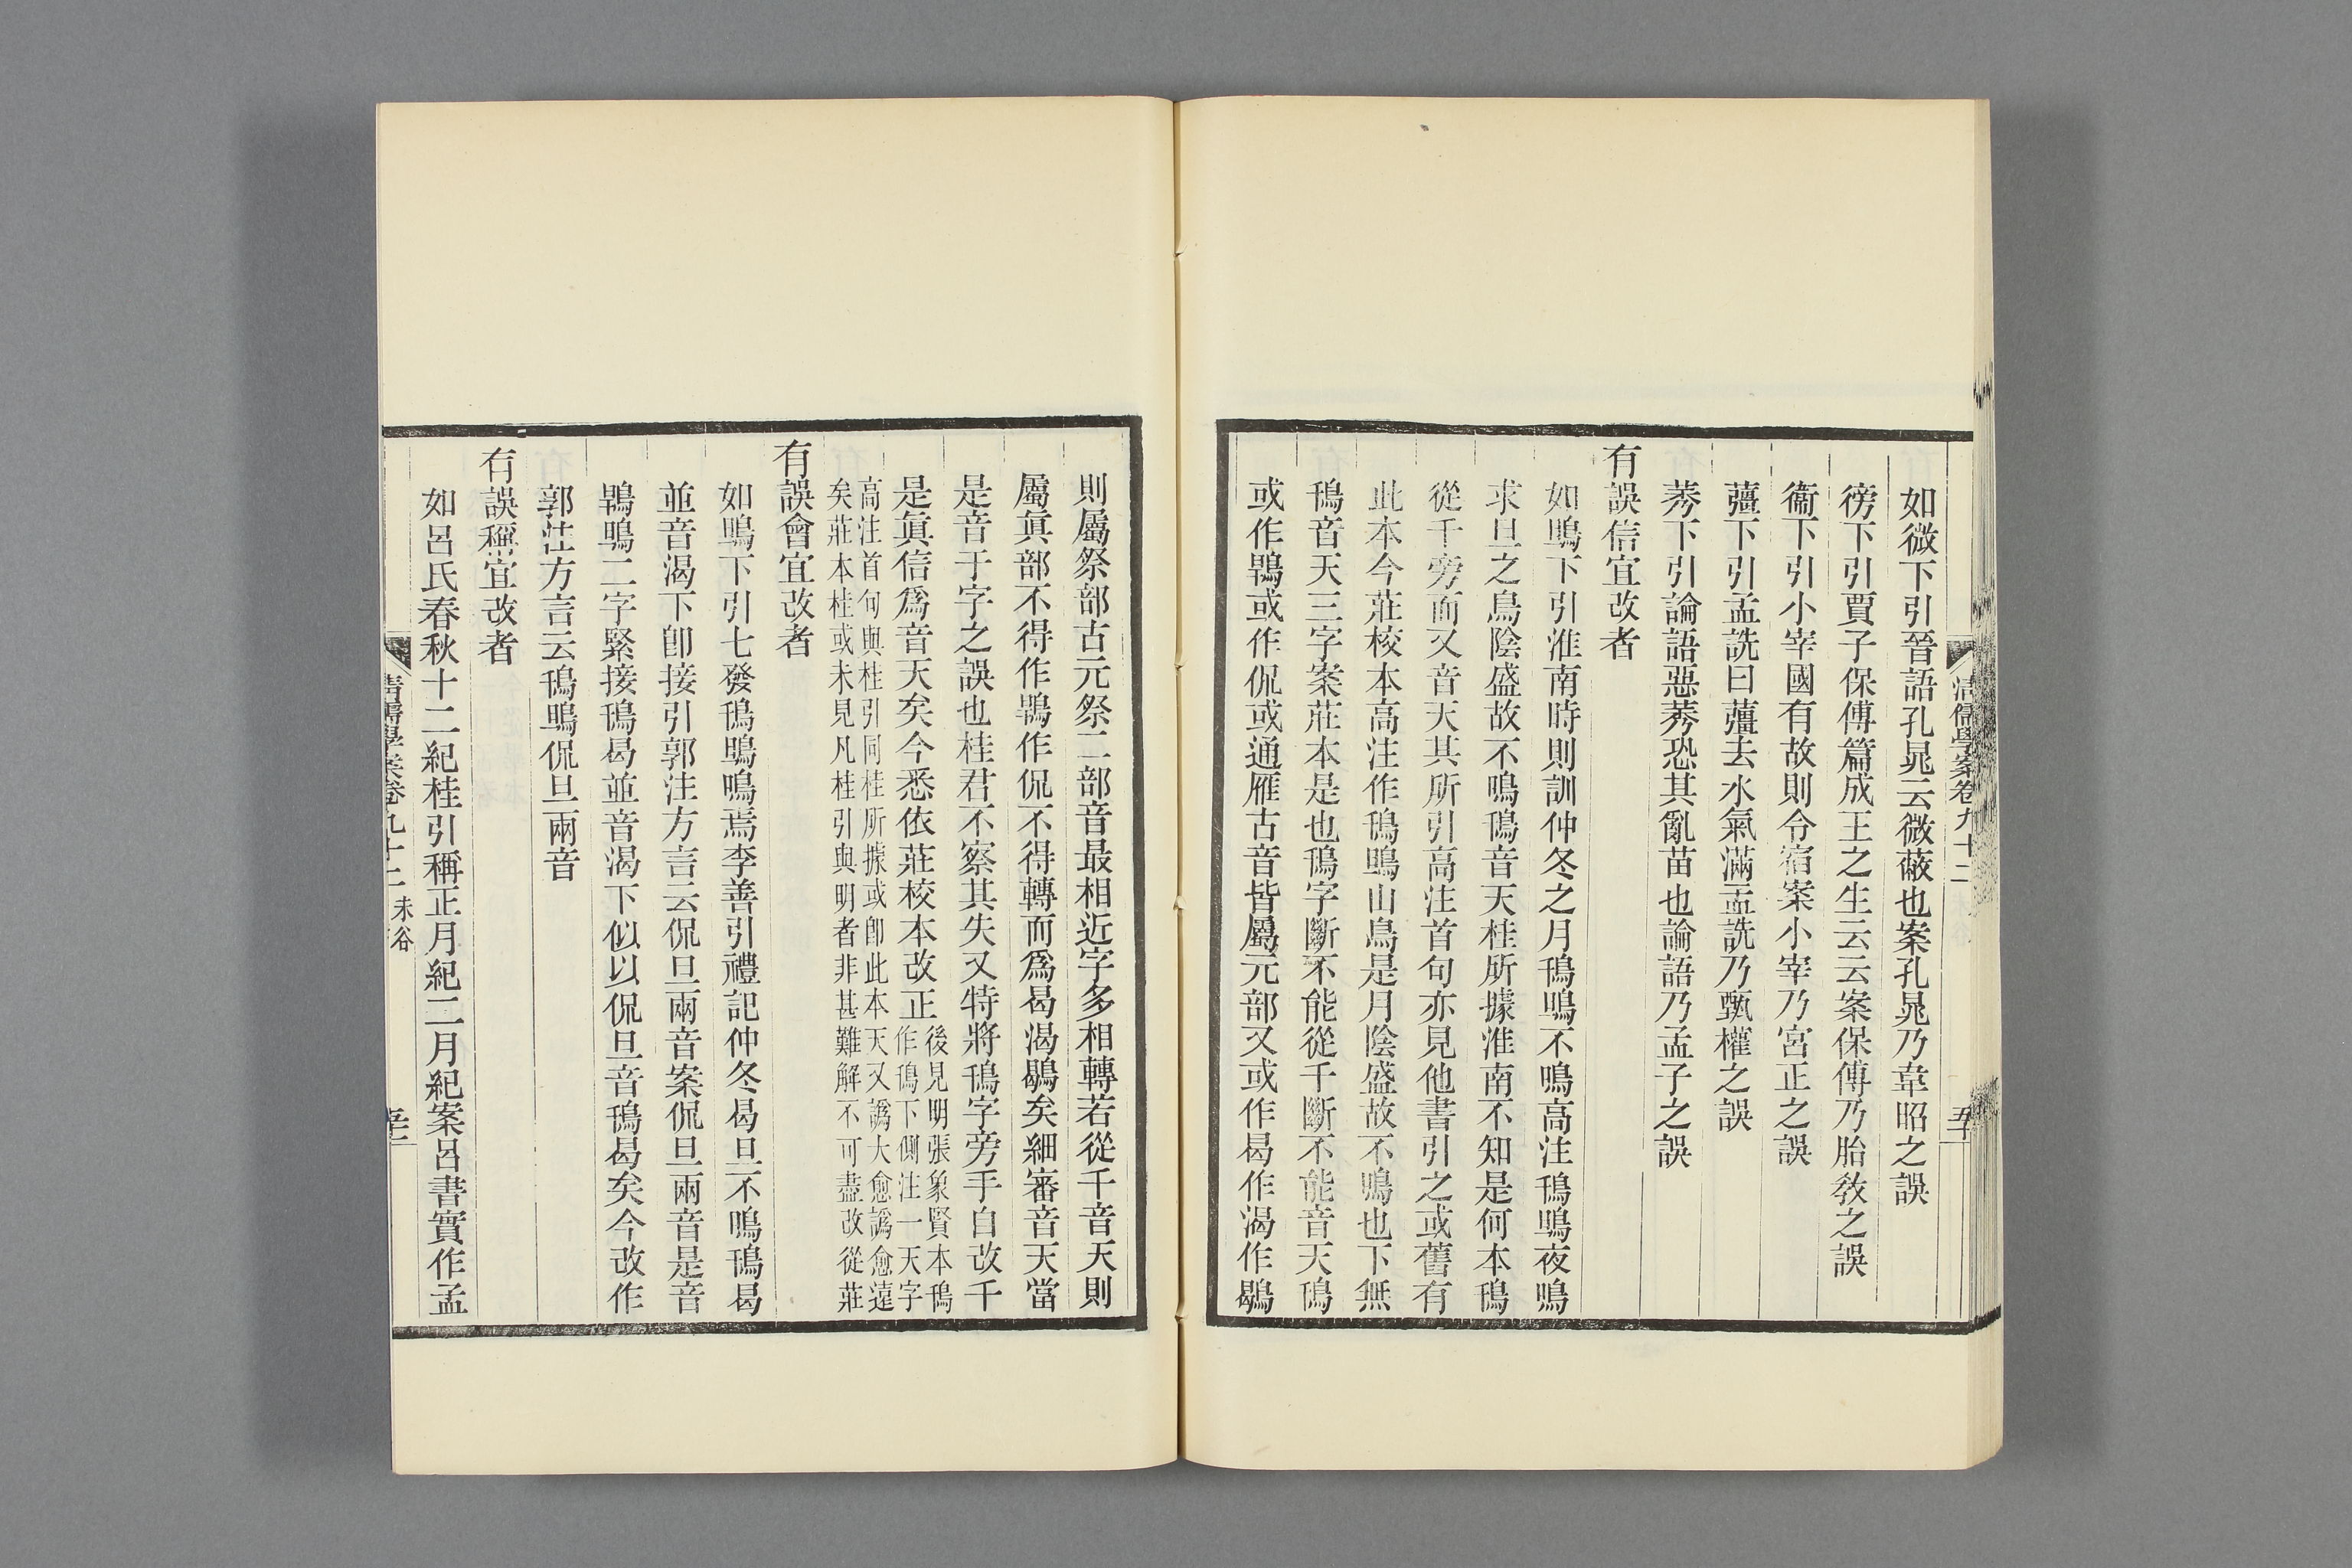 清儒學案卷九十二
如微下引晉語孔晁云微蔽也案孔晁乃韋昭之誤
徬下引賈子保傅篇成王之生云云案保傅乃胎敎之誤
衞下引小宰國有故則令宿案小宰乃宮正之誤
薽下引論語惡莠恐其亂苗也論語乃孟子之誤
有誤信宜改者
如鴠下引淮南時則訓仲冬之月鳱鴠不鳴高注鳱鴠夜鳴
求旦之鳥陰盛故不鳴鳱音天桂所據淮南不知是何本鳱
從千旁而又音天其所引高注首句亦見他書引之或舊有
此本今莊校本高注作鳱鴠山鳥是月陰盛故不鳴也下無
鳱音天三字案莊本是也鳱字斷不能從千斷不能音天鳱
或作鶡或作侃或通雁古音皆屬元部又或作曷作渴作鶡
則屬祭部古元祭二部音最相近字多相轉若從千音天則
屬眞部不得作鶡作侃不得轉而爲曷渴鶡矣細審音天當
是音于字之誤也桂君不察其失又特將鳱字旁手自改千
是眞信爲音天矣今悉依莊校本改正後見明張象賢本鳱
作鳱下側注一天字
高注首句與桂引同桂所據或卽此本天又譌大愈譌愈遠
矣莊本桂或未見凡桂引與明者非甚難解不可盡改從莊
有誤會宜改者
如鴠下引七發鳱鴠鳴焉李善引禮記仲冬曷旦不鳴鳱曷
並音渴下卽接引郭注方言云侃旦兩音案侃旦兩音是音
鶡鴠二字緊接鳱曷並音渴下似以侃旦音鳱曷矣今改作
郭注方言云鳱鴠侃旦兩音
有誤稱宜改者
如呂氏春秋十二紀桂引稱正月紀二月紀案呂書實作孟
清儒學案卷九十二 未谷